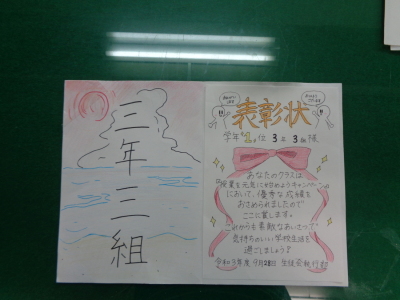 三年三組
表彰状
学年2位 3年3組殿
あなたのクラスは
授業を元気に始めようキャンペーン
において、優秀な成績を
おさめられましたので
ここに賞します。
これからも素敵なあいさつで
気持ちのいい学校生活を
過ごしましょう！
令和3年度 9月28日 生徒会執行部